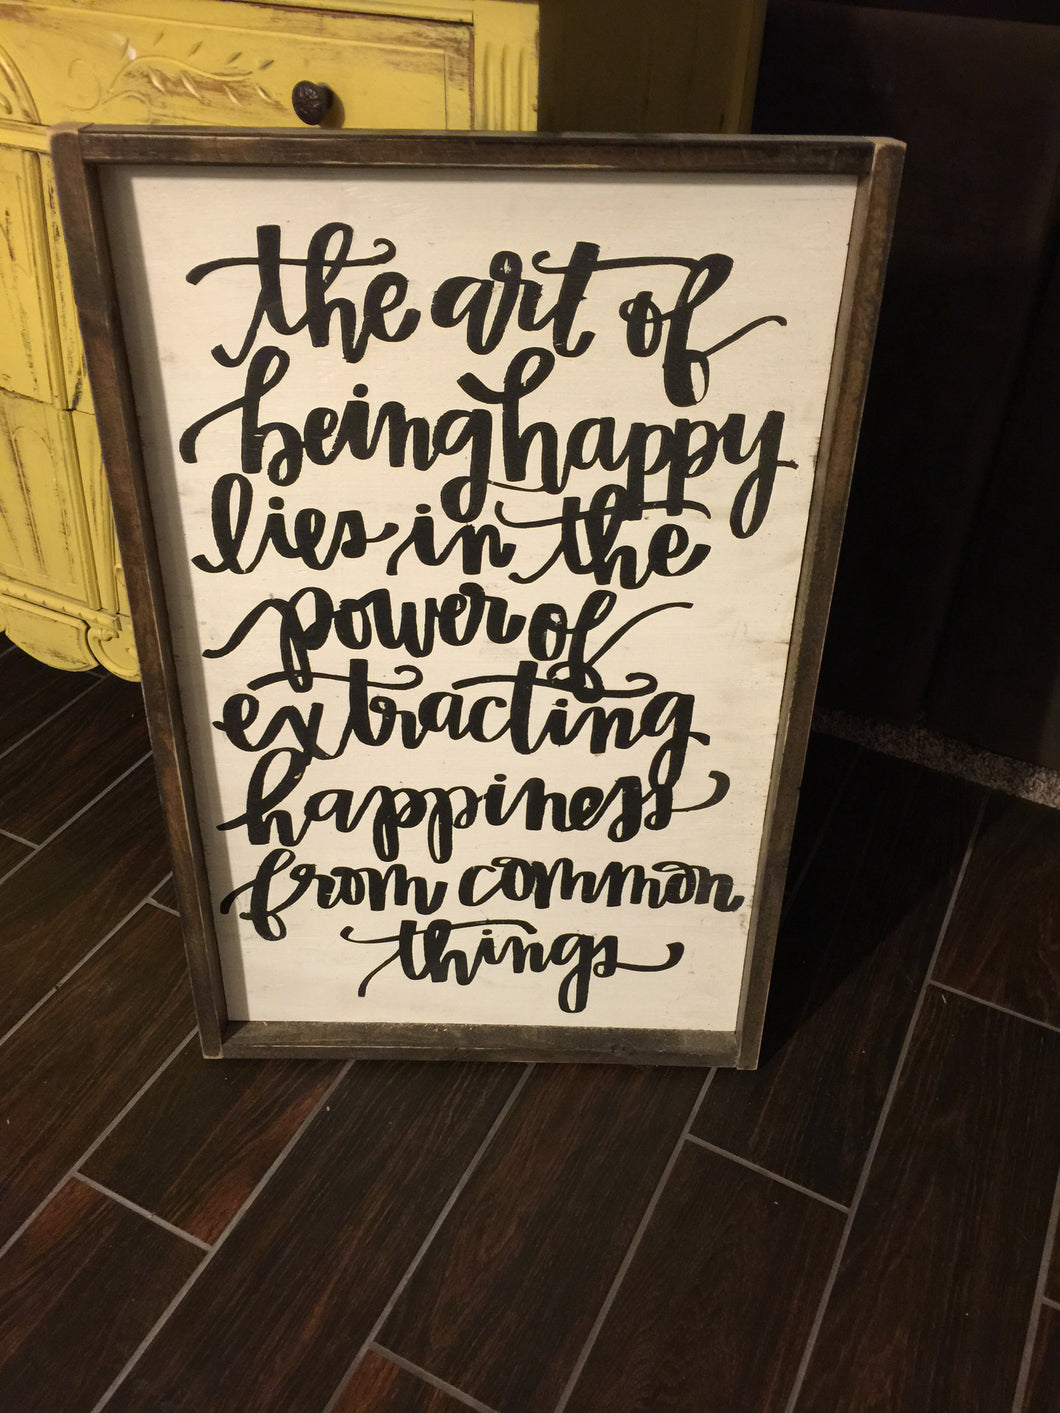 the art of
being happy
lies in the
power of
extracting
happiness
from common
things